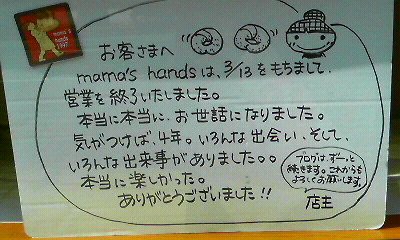 mama's hands 1997
お客さまへ
mama's handsは、3/13をもちまして、
営業を終了いたしました。
本当に本当に、お世話になりました。
気がつけば、4年。いろんな出会い、そして、
いろんな出来事がありました。。
本当に楽しかった。
ありがとうございました!!
ブログは、ずーっと
続きます。これからも
よろしくお願いします。
店主